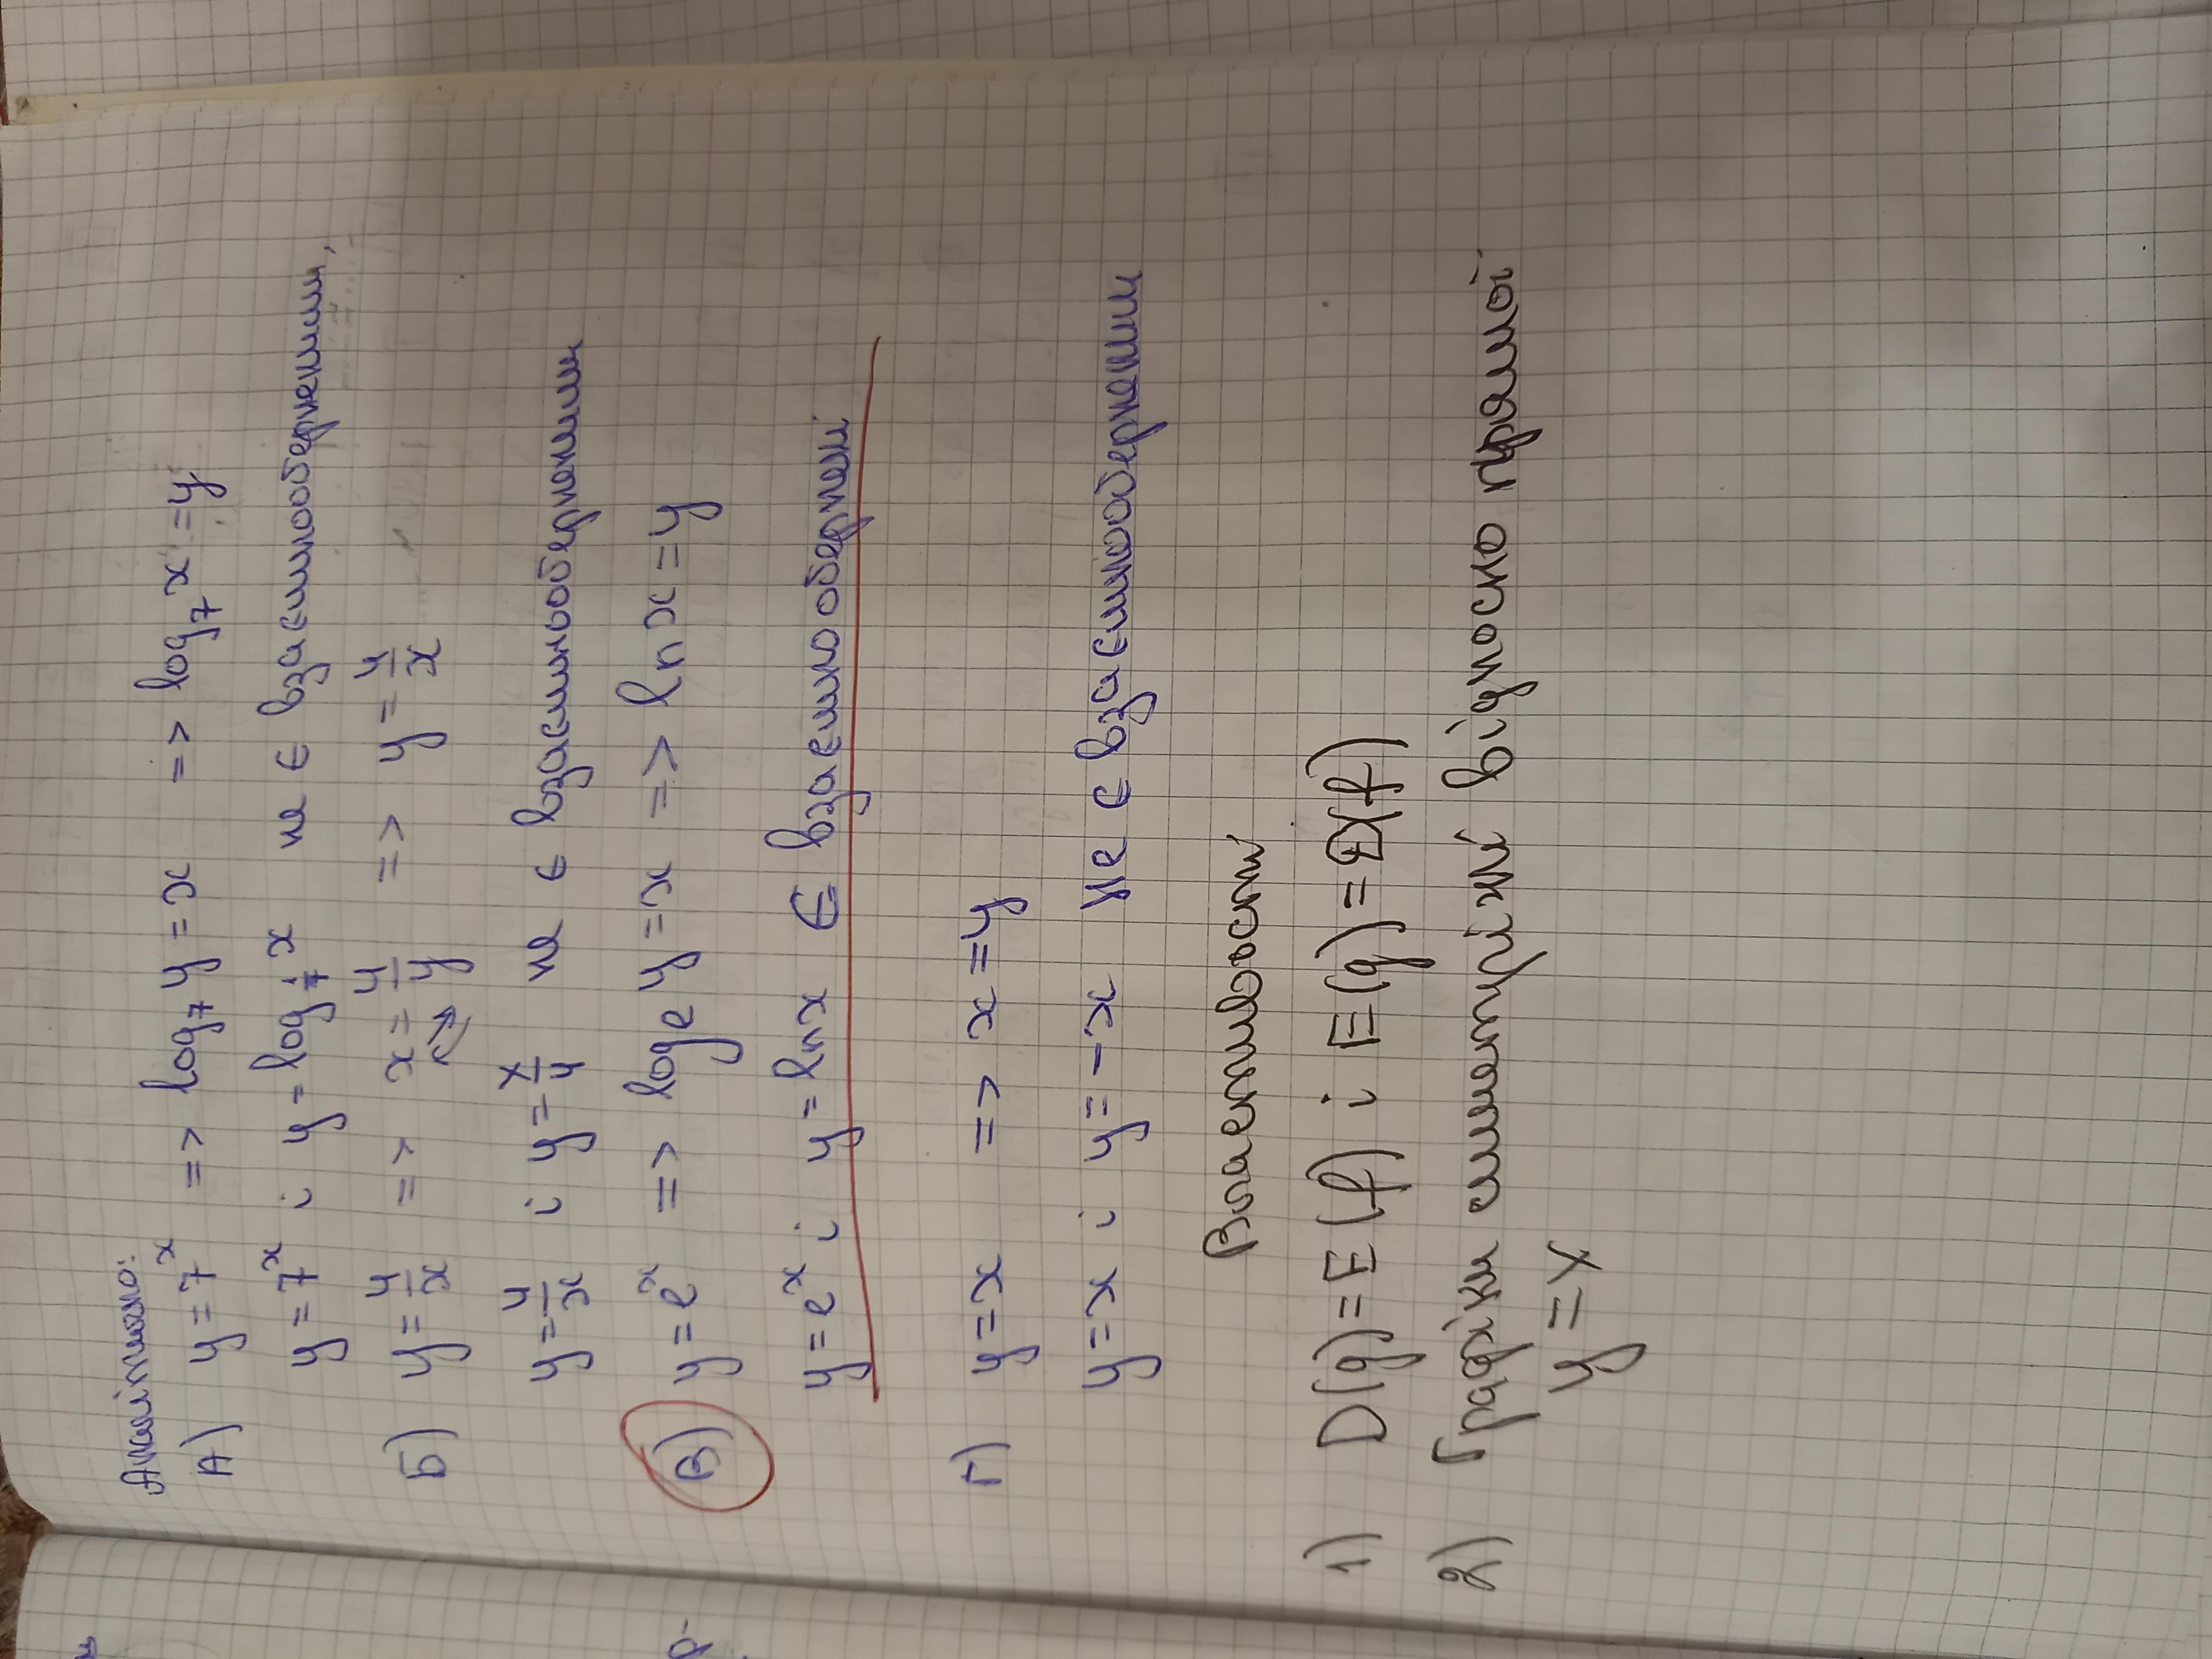 Аналітично:
А) y = 7^x => log_7 y = x => log_7 x = y
y = 7^x і y = log_{1/7} x не є взаємнооберненими,
Б) y = 4/x => x = 4/y => y = 4/x
y = 4/x і y = x/4 не є взаємнооберненими
В) y = e^x => log e y = x => ln x = y
y = e^x і y = ln x Є взаємнообернені
Г) y = x => x = y
y = x і y = -x не є взаємнооберненими
Властивості
1) D(g) = E(f) і E(g) = D(f)
2) Графіки симетричні відносно прямої
y = x